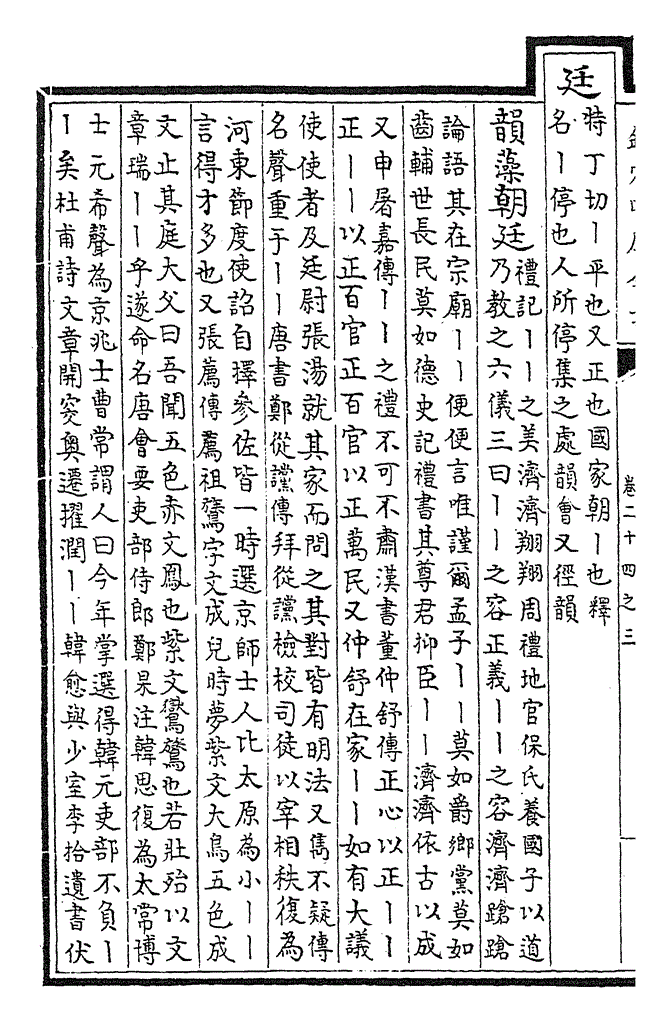 卷二十四之三
廷
特丁切丨平也又正也國家朝丨也釋
名丨停也人所停集之處韻會又徑韻
韻藻朝廷
禮記丨丨之美濟濟翔翔周禮地官保氏養國子以道
乃教之六儀三曰丨丨之容正義丨丨之容濟濟蹌蹌
論語其在宗廟丨丨便便言唯謹爾孟子丨丨莫如爵鄉黨莫如
齒輔世長民莫如德史記禮書其尊君抑臣丨丨濟濟依古以成
又申屠嘉傳丨丨之禮不可不肅漢書董仲舒傳正心以正丨丨
正丨丨以正百官正百官以正萬民又仲舒在家丨丨如有大議
使使者及廷尉張湯就其家而問之其對皆有明法又雋不疑傳
名聲重于丨丨唐書鄭從讜傳拜從讜檢校司徒以宰相秩復為
河東節度使詔自擇參佐皆一時選京師士人比太原為小丨丨
言得才多也又張薦傳薦祖鷟字文成兒時夢紫文大鳥五色成
文止其庭大父曰吾聞五色赤文鳳也紫文鸑鷟也若壯殆以文
章瑞丨丨乎遂命名唐會要吏部侍郎鄭杲注韓思復為太常博
士元希聲為京兆士曹常謂人曰今年掌選得韓元吏部不負丨
丨矣杜甫詩文章開窔奧遷擢潤丨丨韓愈與少室李拾遺書伏